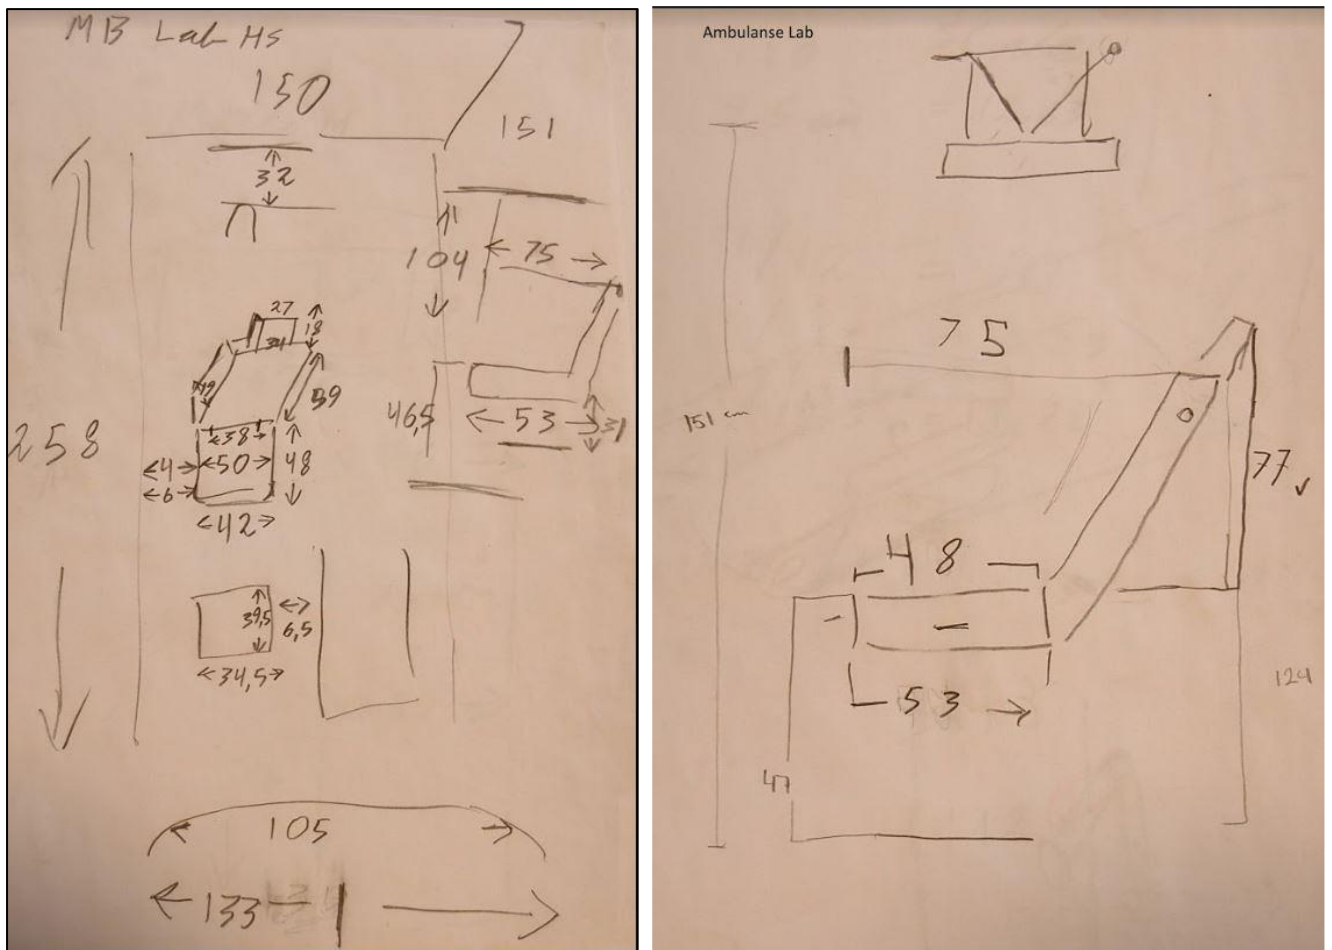 MB Lab HS
150
151
32
104
75
27
18
34
39
38
258
46,5
53
31
4
50
48
6
42
39,5
6,5
34,5
105
133
Ambulanse Lab
75
151 cm
77
48
53
124
47